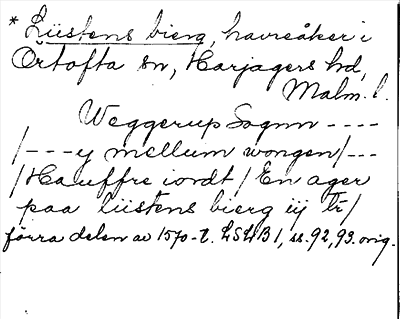 * Liistens bierg, havreåker i
Örtofta sn, Harjagers hd,
Malm. l.
Weggerup Sognn ----
/---y mellum wongen/---
/Hauffre iordt/ En ager
paa Liistens bierg iij tr/
förra delen av 1570-t. LSLB 1, ss. 92, 93. orig.